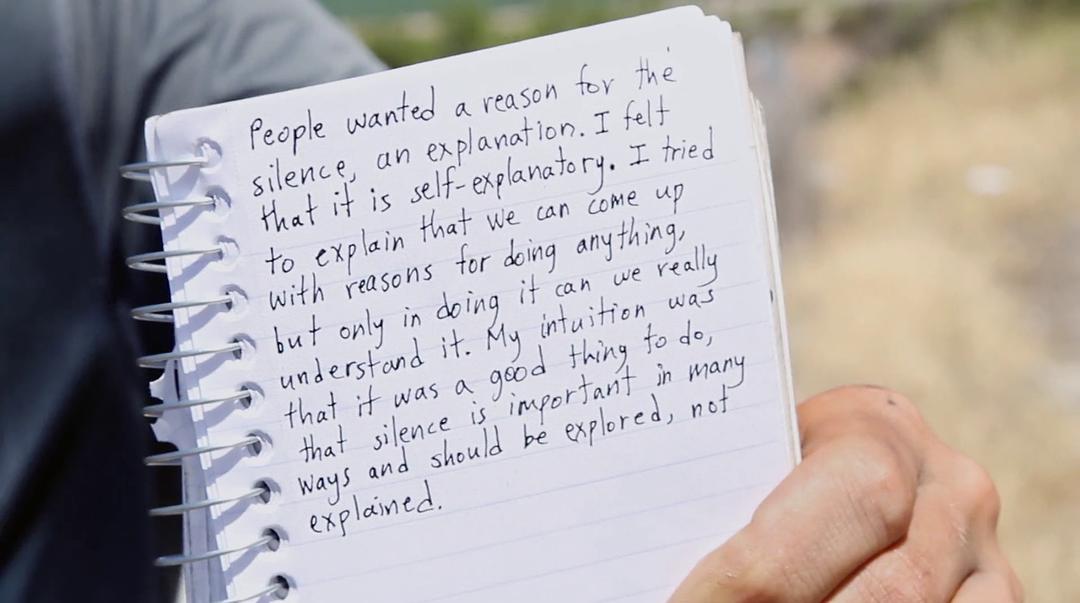 People wanted a reason for the
silence, an explanation. I felt
that it is self-explanatory. I tried
to explain that we can come up
with reasons for doing anything,
but only in doing it can we really
understand it. My intuition was
that it was a good thing to do,
that silence is important in many
ways and should be explored, not
explained.